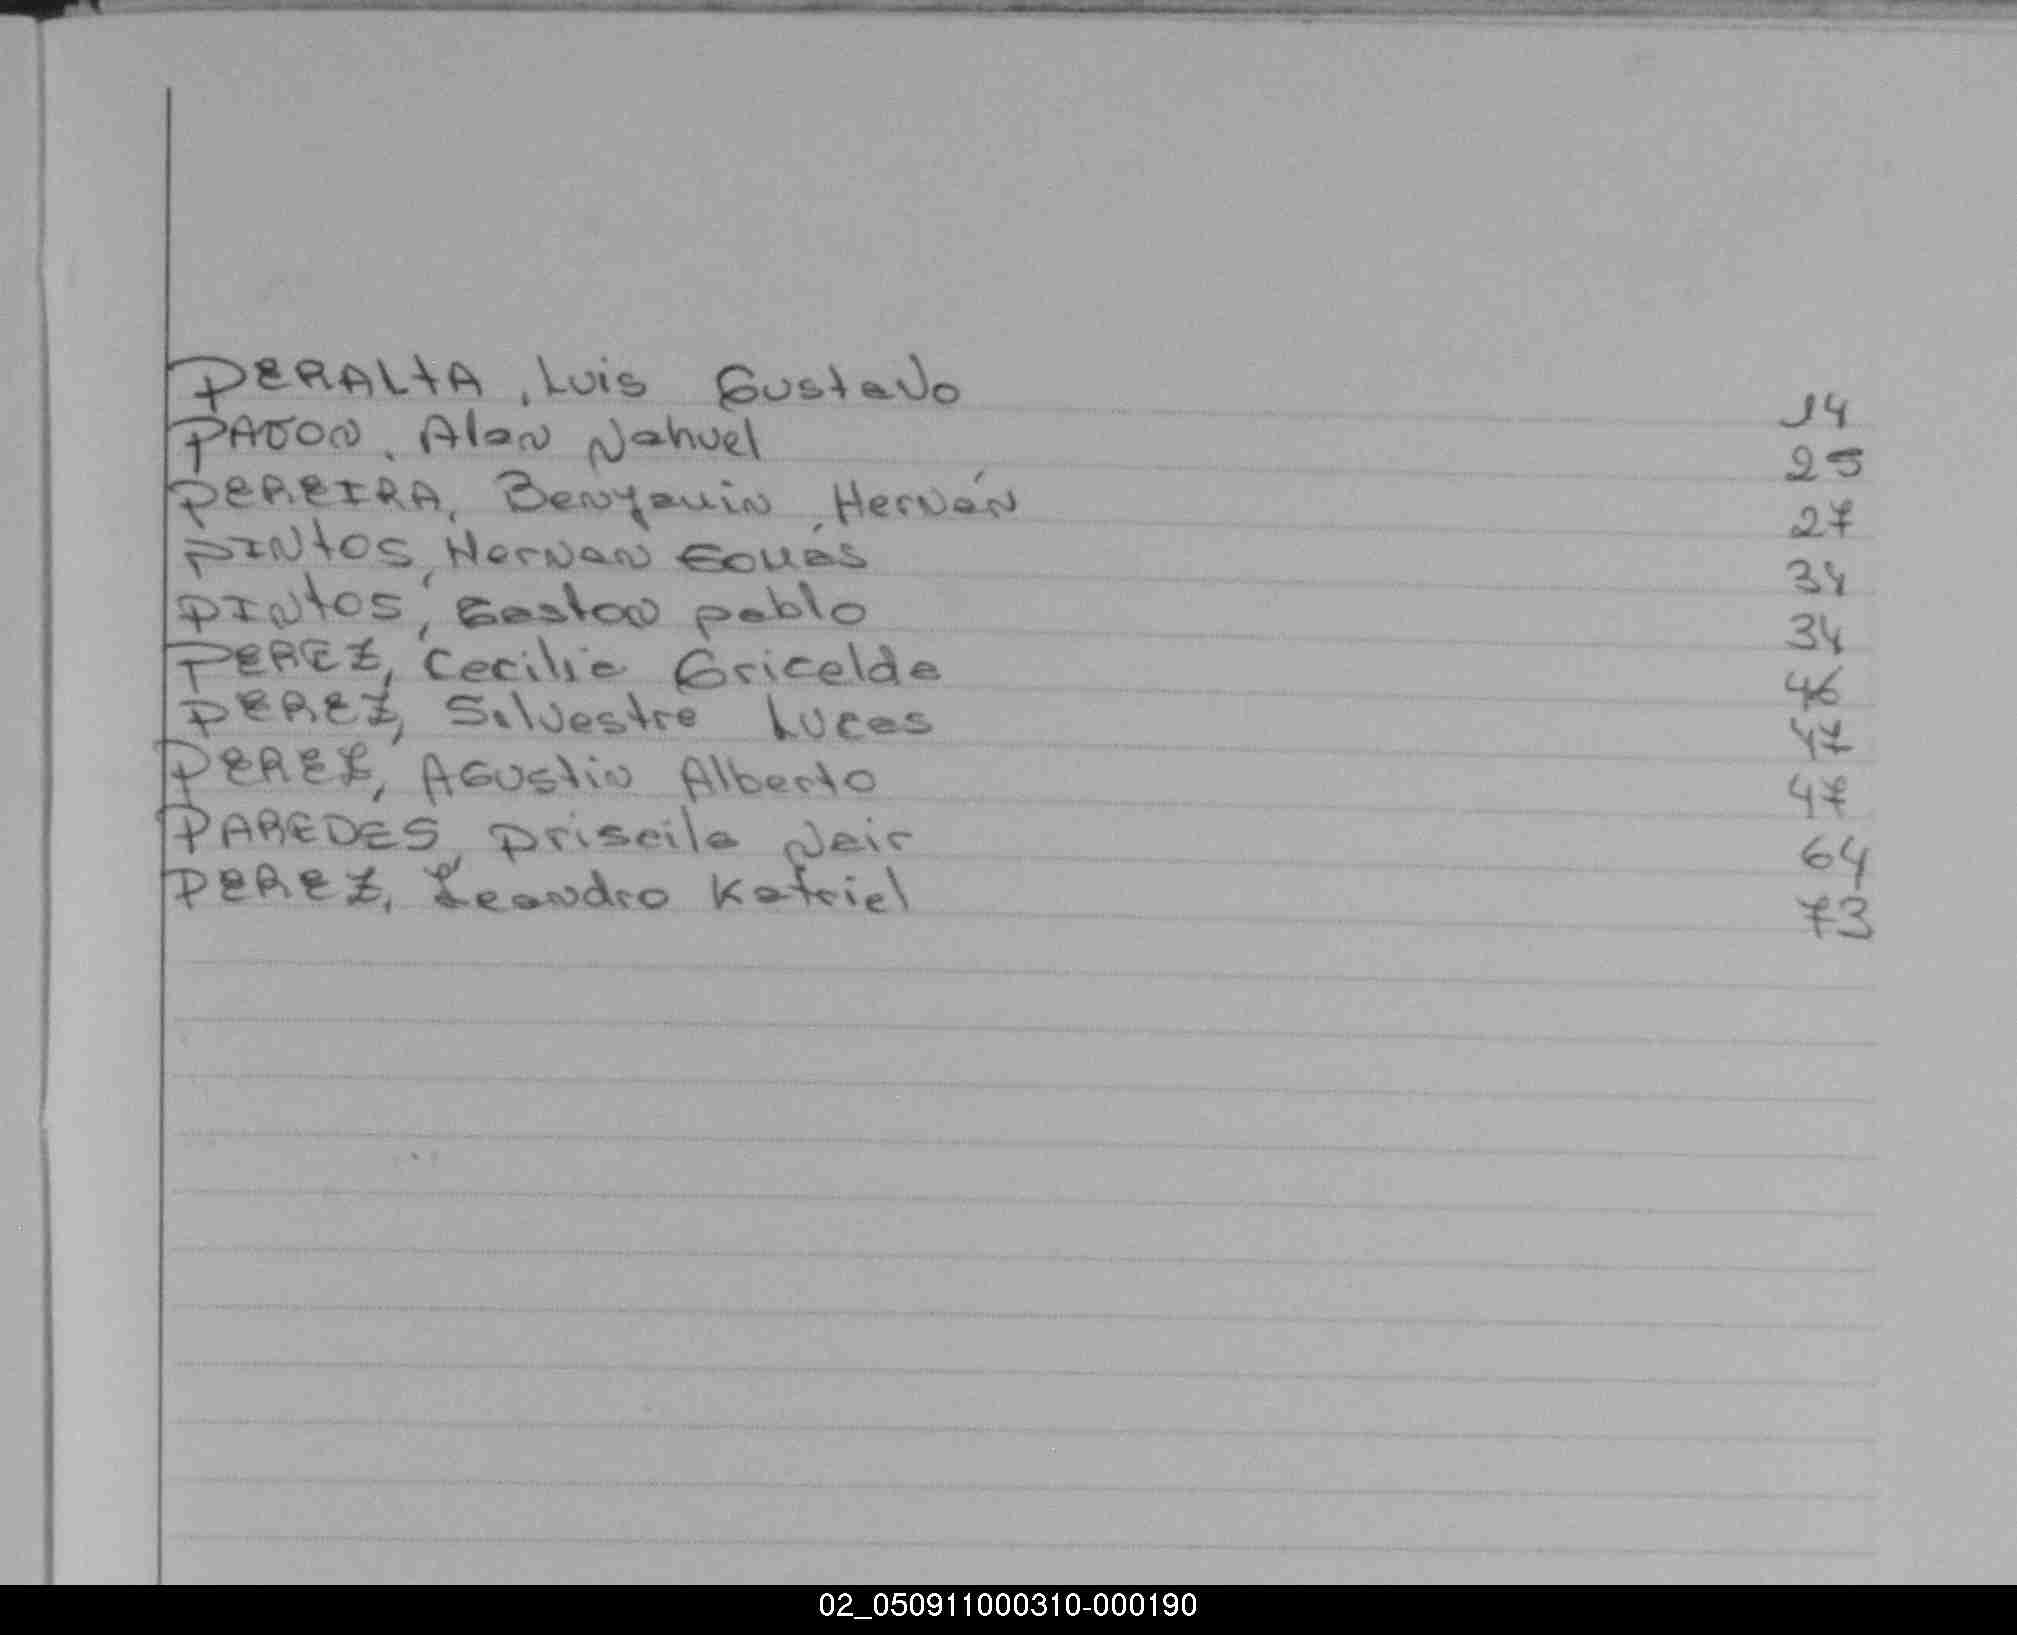 PERALTA, Luis Gustavo 14
PAJON, Alan Nahuel 25
PEREIRA, Benyamin, Hernán 27
PINTOS, Hernan 34
PINTOS, Gaston pablo 34
PEREZ, Cecilia Gricelda 46
PEREZ, Silvestre Lucas 47
PEREZ, AGustin Alberto 47
PAREDES, Priscila Nair 64
PEREZ, Leandro Katriel 73
02_050911000310-000190